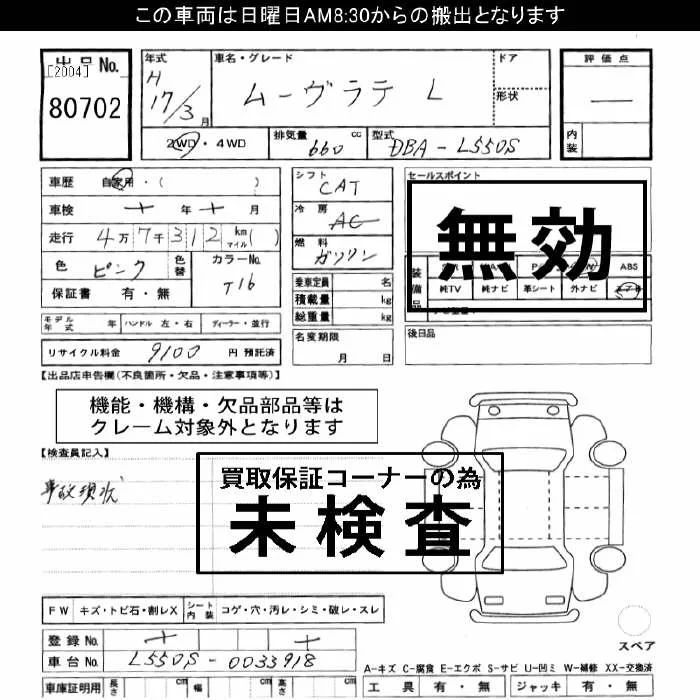 この車両は日曜日AM8:30からの搬出となります
出品 No.
[2004]
80702
年式 H 17/3 月
車名・グレード ムーヴラテ L
ドア
形状
2WD・4WD
排気量 660 cc
型式 DBA-L550S
評価点
—
内装
車歴 自家用・( )
車検 + 年 + 月
走行 4万7千312 km マイル ( )
色 ピンク 色替
カラーNo. T16
保証書 有・無
シフト CAT
冷房 AC
燃料 ガソリン
乗車定員 名
積載量 kg
総重量 kg
セールスポイント
無効
装備品
ABS
純TV 純ナビ 革シート 外ナビ
モデル年式 年 ハンドル 左・右 ディーラー・並行
名変期限 月 日
後日品
リサイクル料金 9100 円 預託済
【出品店申告欄(不良箇所・欠品・注意事項等)】
機能・機構・欠品部品等は
クレーム対象外となります
【検査員記入】
事故現状
買取保証コーナーの為
未検査
FW キズ・トビ石・割レX シート内装 コゲ・穴・汚レ・シミ・破レ・スレ
登録No. + +
車台No. L550S-0033918
スペア
A-キズ C-腐食 E-エクボ S-サビ U-凹ミ W-補修 XX-交換済
車庫証明用 長さ cm 幅 cm 高さ cm
工具 有・無 ジャッキ 有・無